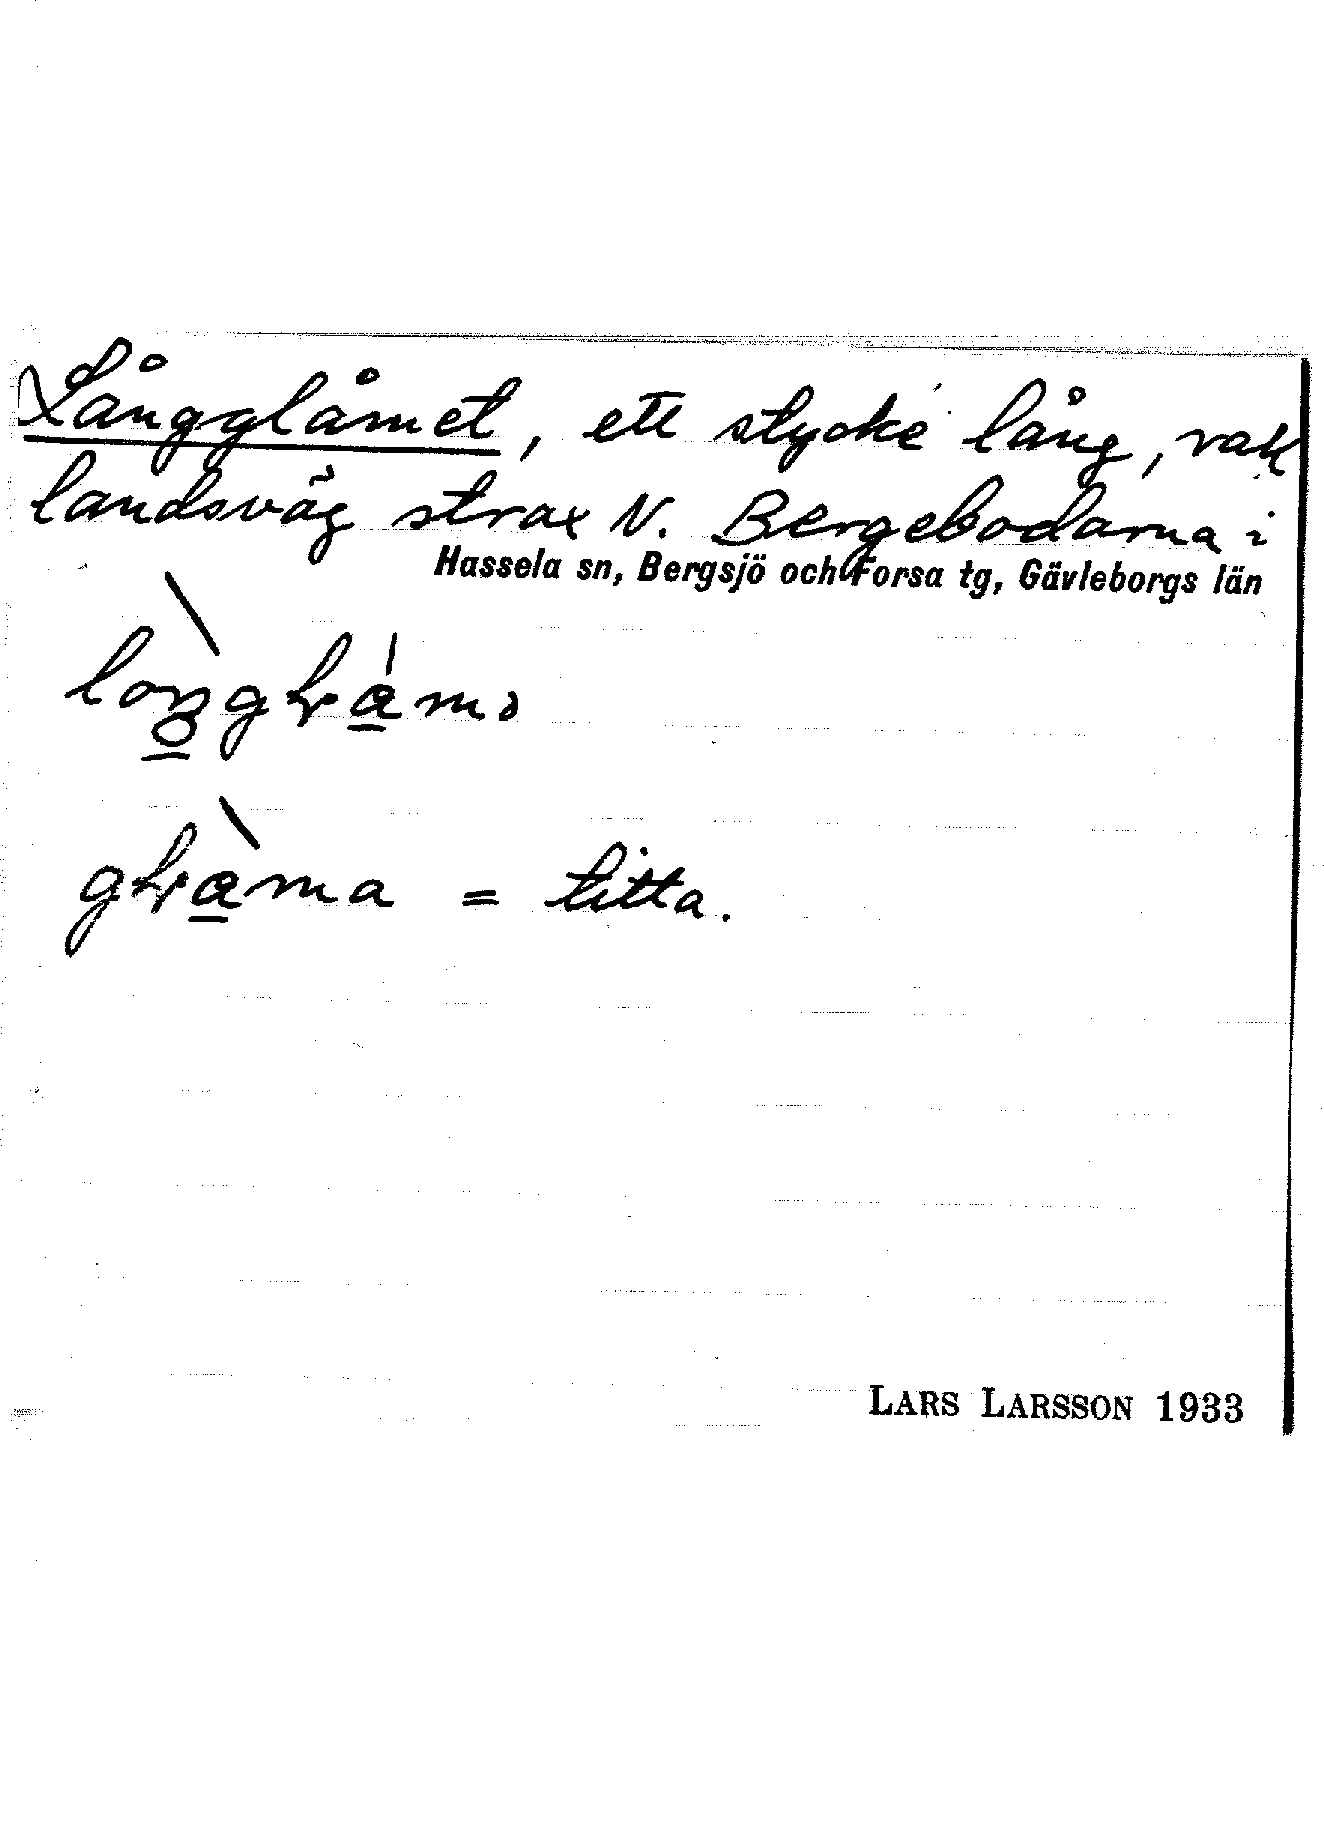 Långglåmet, ett stycke lång, rak
landsväg strax N. Bergebodarna i
Hassela sn, Bergsjö och Forsa tg, Gävleborgs län
= titta.
LARS LARSSON 1933